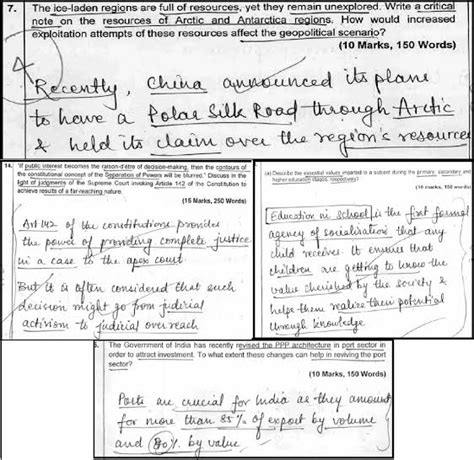 7. The ice-laden regions are full of resources, yet they remain unexplored. Write a critical
note on the resources of Arctic and Antarctica regions. How would increased
exploitation attempts of these resources affect the geopolitical scenario?
(10 Marks, 150 Words)
Recently, China announced its plans
to have a Polar Silk Road through Arctic
& held its claim over the region's resources
14. "If public interest becomes the raison-d'etre of decision-making, then the contours of
the constitutional concept of the Separation of Powers will be blurred." Discuss in the
light of judgments of the Supreme Court invoking Article 142 of the Constitution to
achieve results of a far-reaching nature.
(15 Marks, 250 Words)
Art 142 of the constitutions provides
the power of providing complete justice
in a case to the apex court.
But it is often considered that such
decision might go from judicial
activism to judicial overreach
(a) Describe the essential values imparted to a subject during the primary, secondary and
higher education stages, respectively?
(10 marks, 150 words)
Education in school is the first formal
agency of socialisation that any
child receives. It ensures that
children are getting to know the
value cherished by the society &
helps them realize their potential
through knowledge.
The Government of India has recently revised the PPP architecture in port sector in
order to attract investment. To what extent these changes can help in reviving the port
sector?
(10 Marks, 150 Words)
Ports are crucial for India as they amount
for more than 85% of export by volume
and 80% by value